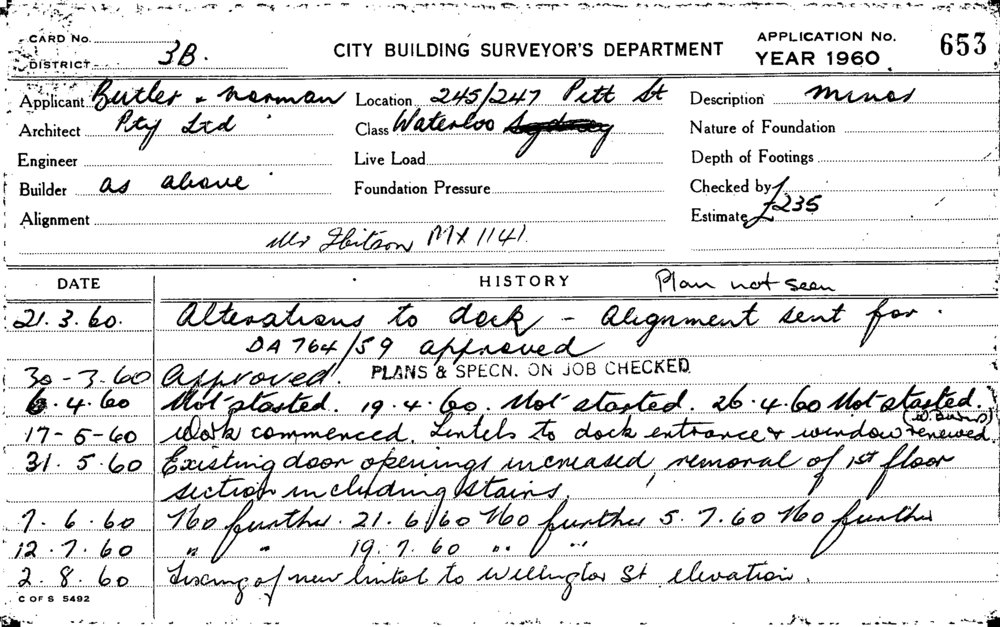 CARD No.
DISTRICT 3B.
CITY BUILDING SURVEYOR'S DEPARTMENT
APPLICATION No. 653
YEAR 1960
Applicant Butler & Norman Location 245/247 Pitt St Description Minor
Architect Pty Ltd Class Waterloo Sydney Nature of Foundation
Engineer Live Load Depth of Footings
Builder as above Foundation Pressure Checked by
Alignment Estimate £235
Mr Ibitson MX1141
DATE HISTORY Plan not seen
21.3.60. Alterations to dock – Alignment sent for.
DA 764/59 approved
30-3.60 Approved. PLANS & SPECN. ON JOB CHECKED
6.4.60 Not started. 19.4.60. Not started. 26.4.60 Not started.
17-5-60 Work commenced. Lintels to dock entrance & window renewed.
31.5.60 Existing door openings increased, removal of 1st floor
section including stairs.
7.6.60 No further. 21.6.60 No further 5.7.60 No further
12.7.60 " " 19.7.60 " "
2.8.60 Fixing of new lintel to Wellington St elevation.
C OF S 5492